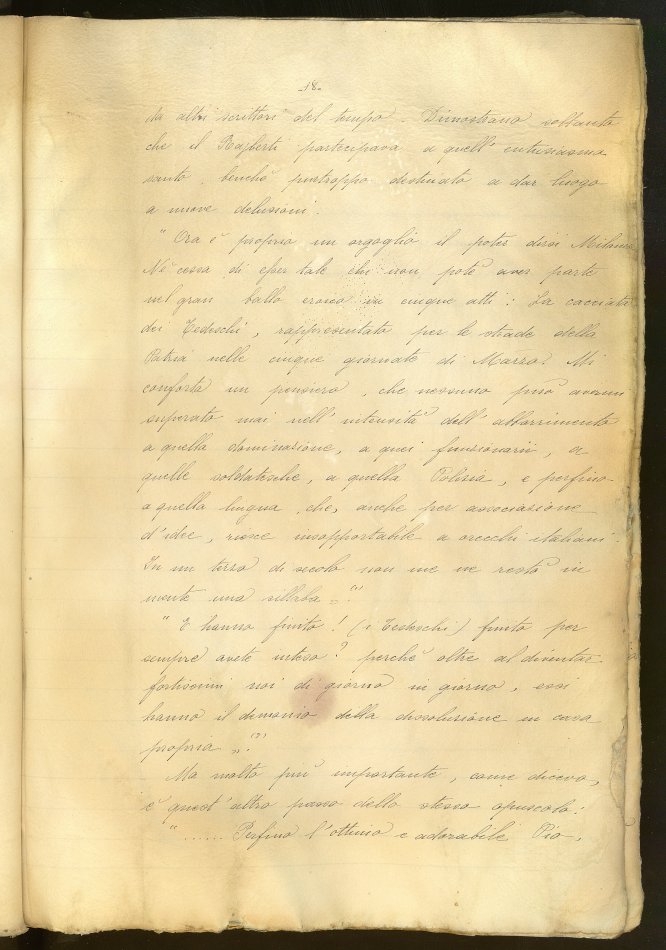 -18-
da altri scrittori del tempo - Dimostrano soltanto
che il Rajberti partecipava a quell'entusiasmo
santo, benchè purtroppo destinato a dar luogo
a nuove delusioni.
" Ora è proprio un orgoglio il poter dirsi Milanese
Nè cessa di esser tale chi non potè aver parte
nel gran ballo eroico in cinque atti: La cacciata
dei Tedeschi, rappresentato per le strade della
Patria nelle cinque giornate di Marzo. Mi
conforta un pensiero, che nessuno può avermi
superato mai nell'intensità dell'abborrimento
a quella dominazione, a quei funzionarii, a
quelle soldatesche, a quella Polizia, e perfino
a quella lingua, che, anche per associazione
d'idee, riesce insopportabile a orecchi italiani.
In un terzo di secolo non me ne restò in
mente una sillaba „. (1)
" E hanno finito! (i Tedeschi) finito per
sempre avete inteso? perchè oltre al diventar
fortissimi noi di giorno in giorno, essi
hanno il demonio della dissoluzione in casa
propria „. (2)
Ma molto più importante, come dicevo,
è quest'altro passo dello stesso opuscolo:
" ...... Perfino l'ottimo e adorabile Pio,